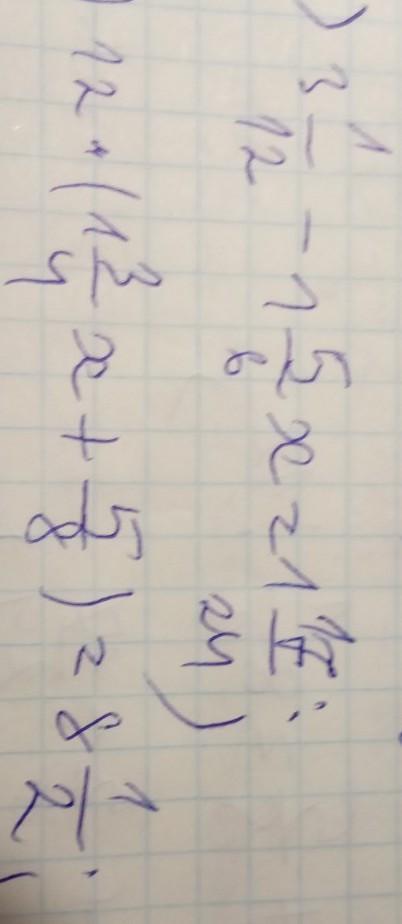 ) 3 1/12 - 1 5/6 x = 1 17/24 ;
) 12 · (1 3/4 x + 5/8) = 8 1/2 ;